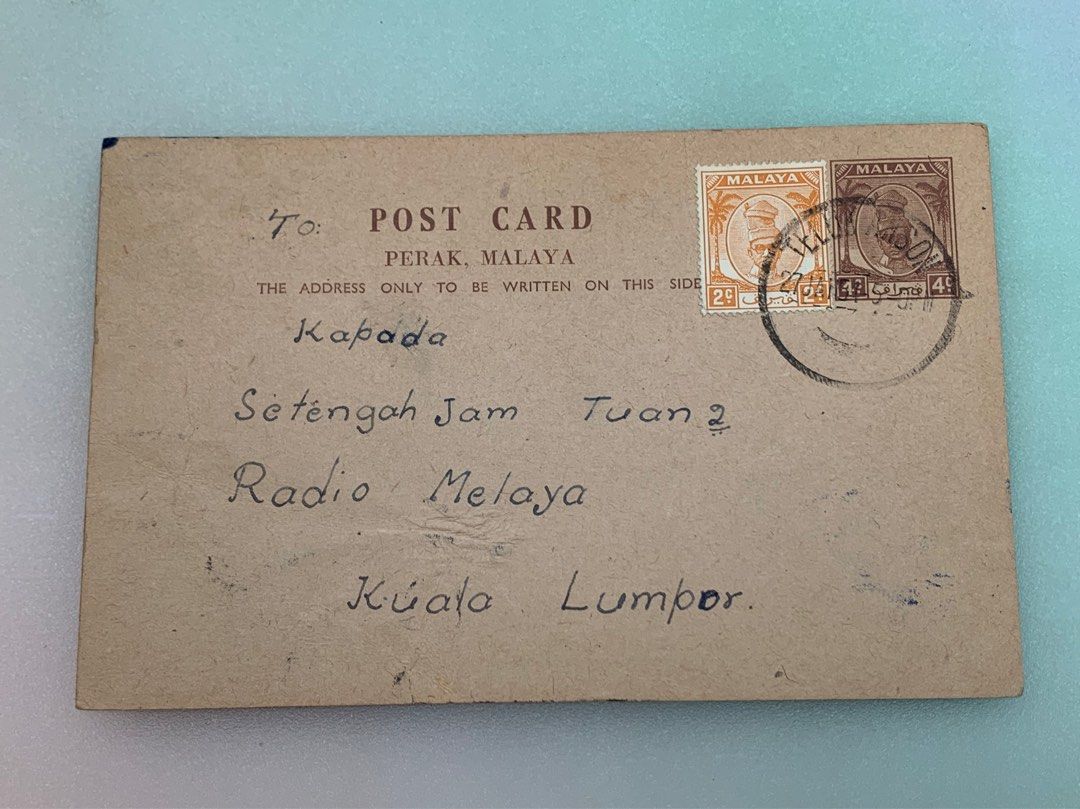 To:
POST CARD
PERAK, MALAYA
THE ADDRESS ONLY TO BE WRITTEN ON THIS SIDE
MALAYA
2c 2c
MALAYA
4c فيراق 4c
TELUK ANSON
27
Kapada
Setengah Jam Tuan2
Radio Melaya
Kuala Lumpor.